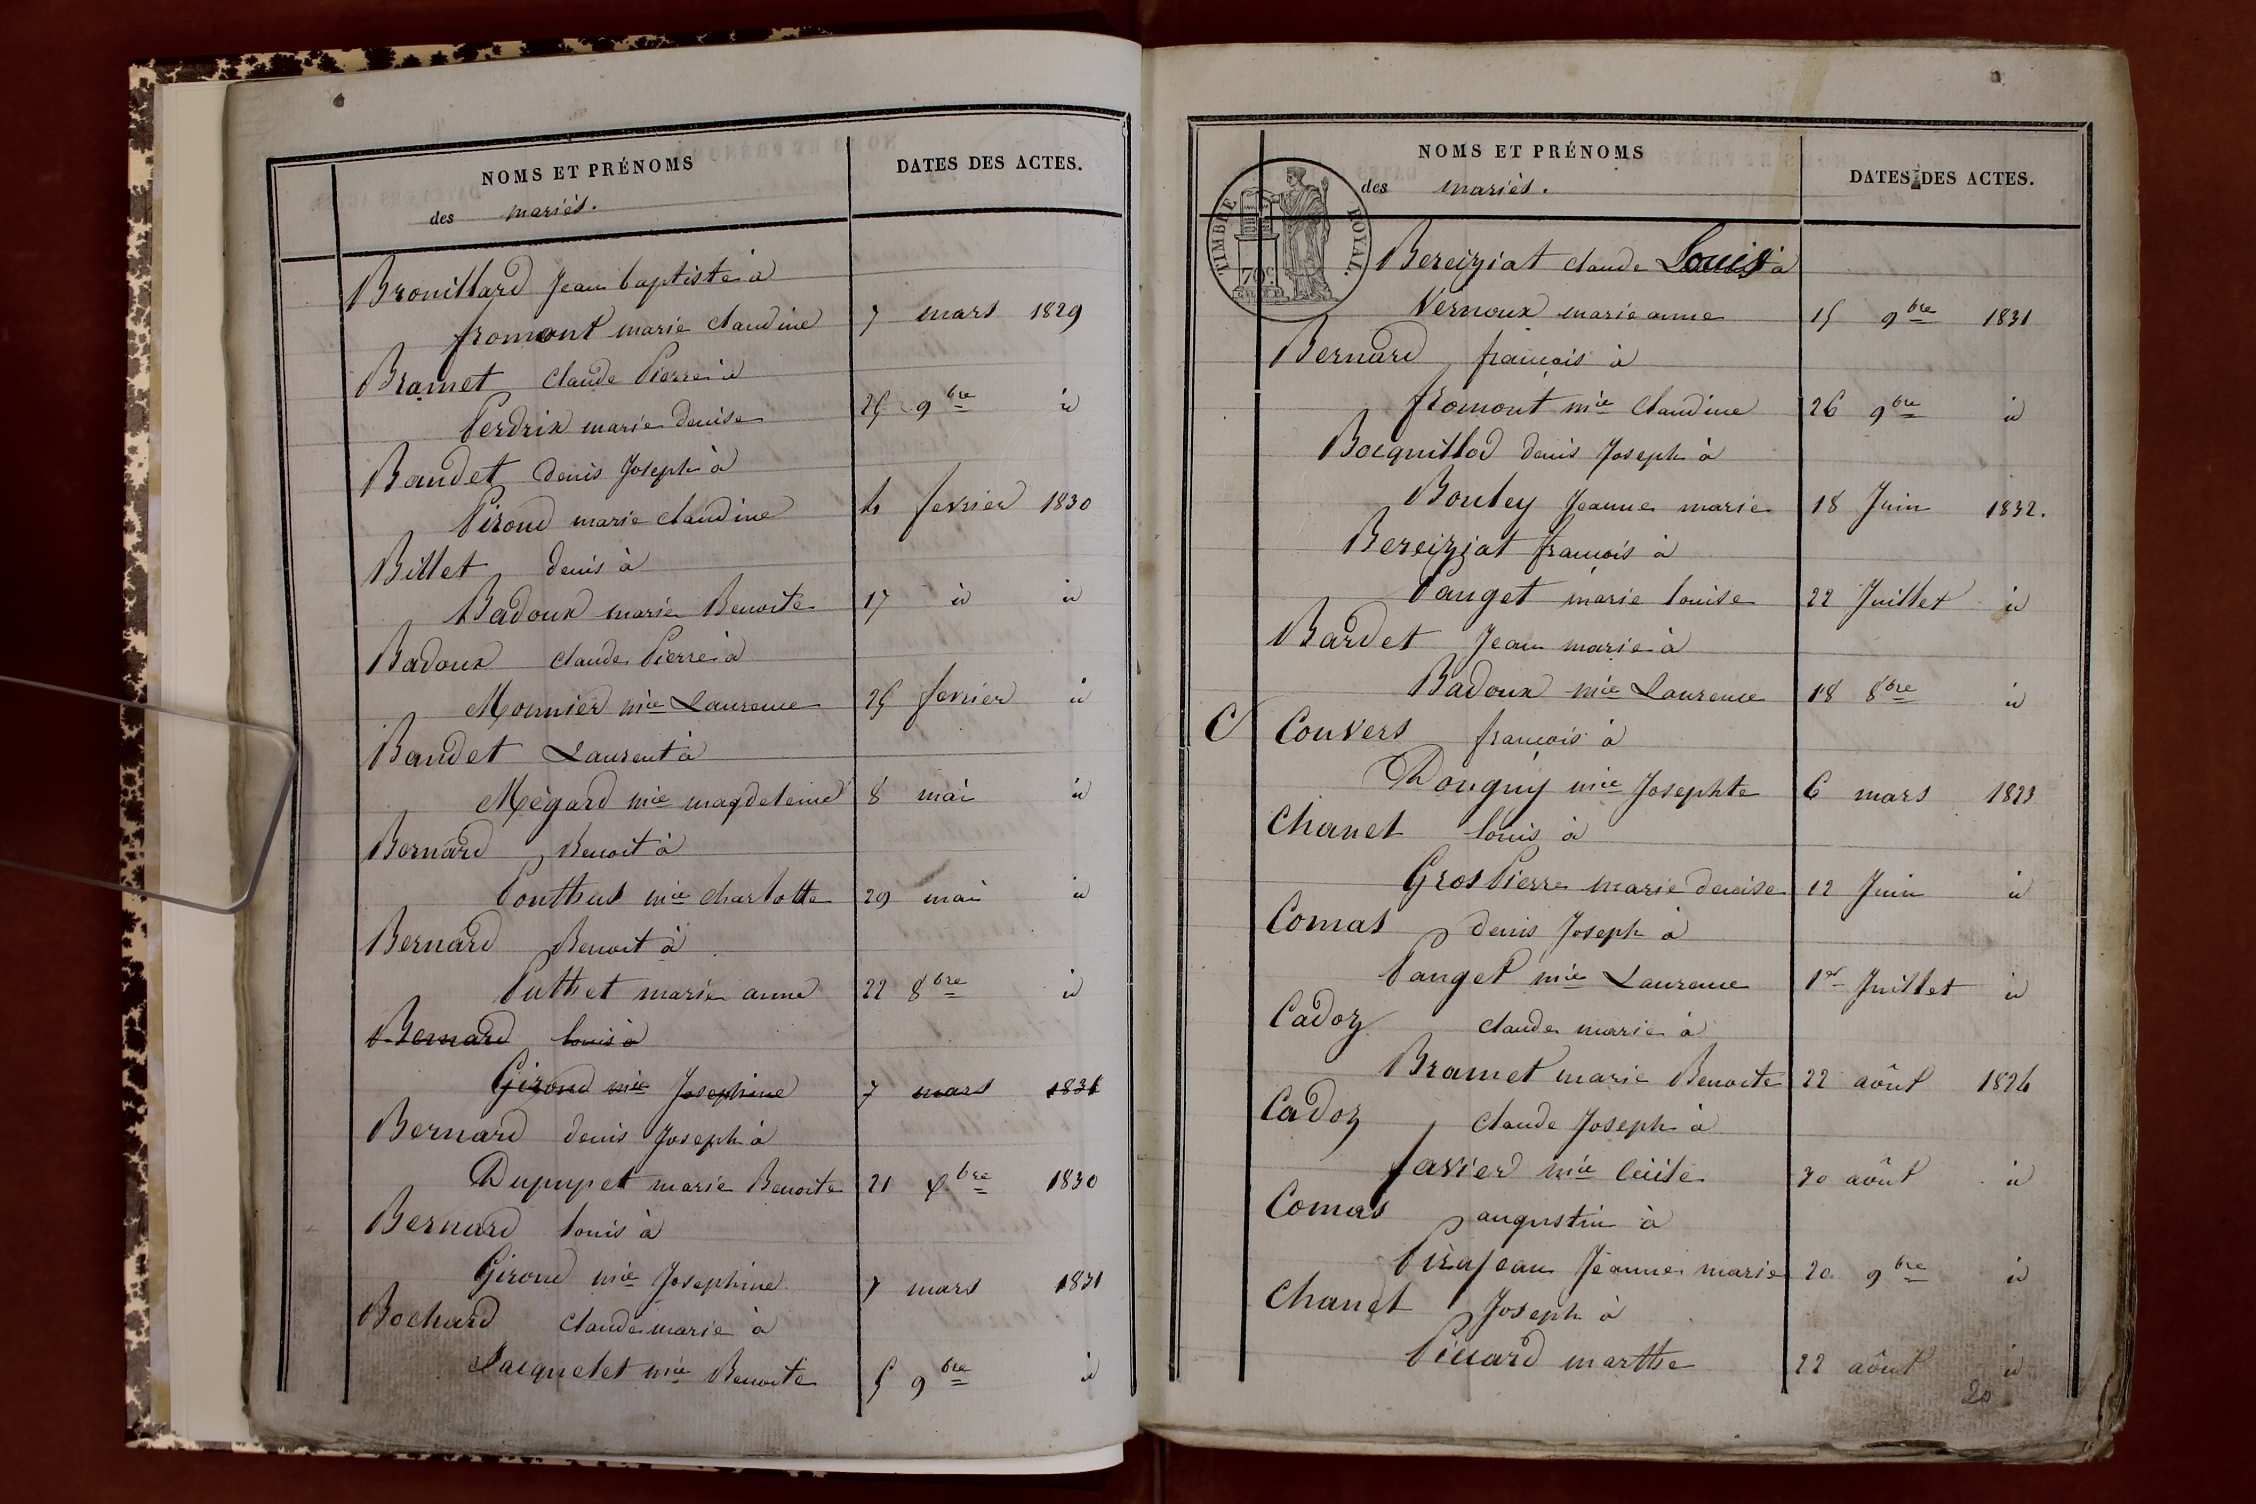 NOMS ET PRÉNOMS
des mariés.
DATES DES ACTES.
Brouillard Jean baptiste à
fromont marie claudine 7 mars 1829
Bramet claude Pierre à
Perdrix marie denise 25 9bre id
Baudet denis Joseph à
Piroud marie claudine 4 fevrier 1830
Billet denis à
Badoux marie Benoite 17 id id
Badoux claude Pierre à
Monnier mie Laurence 25 fevrier id
Baudet Laurent à
Mégard mie magdeleine 8 mai id
Bernard Benoit à
Ponthus mie charlotte 29 mai id
Bernard Benoit à
Puthet marie anne 22 8bre id
Bernard louis à
Giroud mie Josephine 7 mars 1831
Bernard denis Joseph à
Dupupet marie Benoite 21 xbre 1830
Bernard louis à
Giroud mie Josephine 7 mars 1831
Bochard claude marie à
Jacquelet mie Benoite 5 9bre id
NOMS ET PRÉNOMS
des mariés.
DATES DES ACTES.
TIMBRE ROYAL.
70c
Bereiziat claude Louis à
Vernoux marie anne 15 9bre 1831
Bernard françois à
fromont mie Claudine 26 9bre id
Bocquillod denis Joseph à
Bouley Jeanne marie 18 Juin 1832.
Bereiziat francois à
Panget marie louise 22 Juillet id
Bardet Jean marie à
Badoux mie Laurence 18 8bre id
C Convers françois à
Donguy mie Josephte 6 mars 1823
Chanel louis à
GrosPierre marie denise 12 Juin id
Comas denis Joseph à
Panget mie Laurence 1er Juillet id
Cadoz claude marie à
Bramet marie Benoite 22 août 1824
Cadoz claude Joseph à
favier mie Cécile 30 août id
Comas augustin à
Pirajean Jeanne marie 20 9bre id
Chanel Joseph à
Picard marthe 22 août id
20